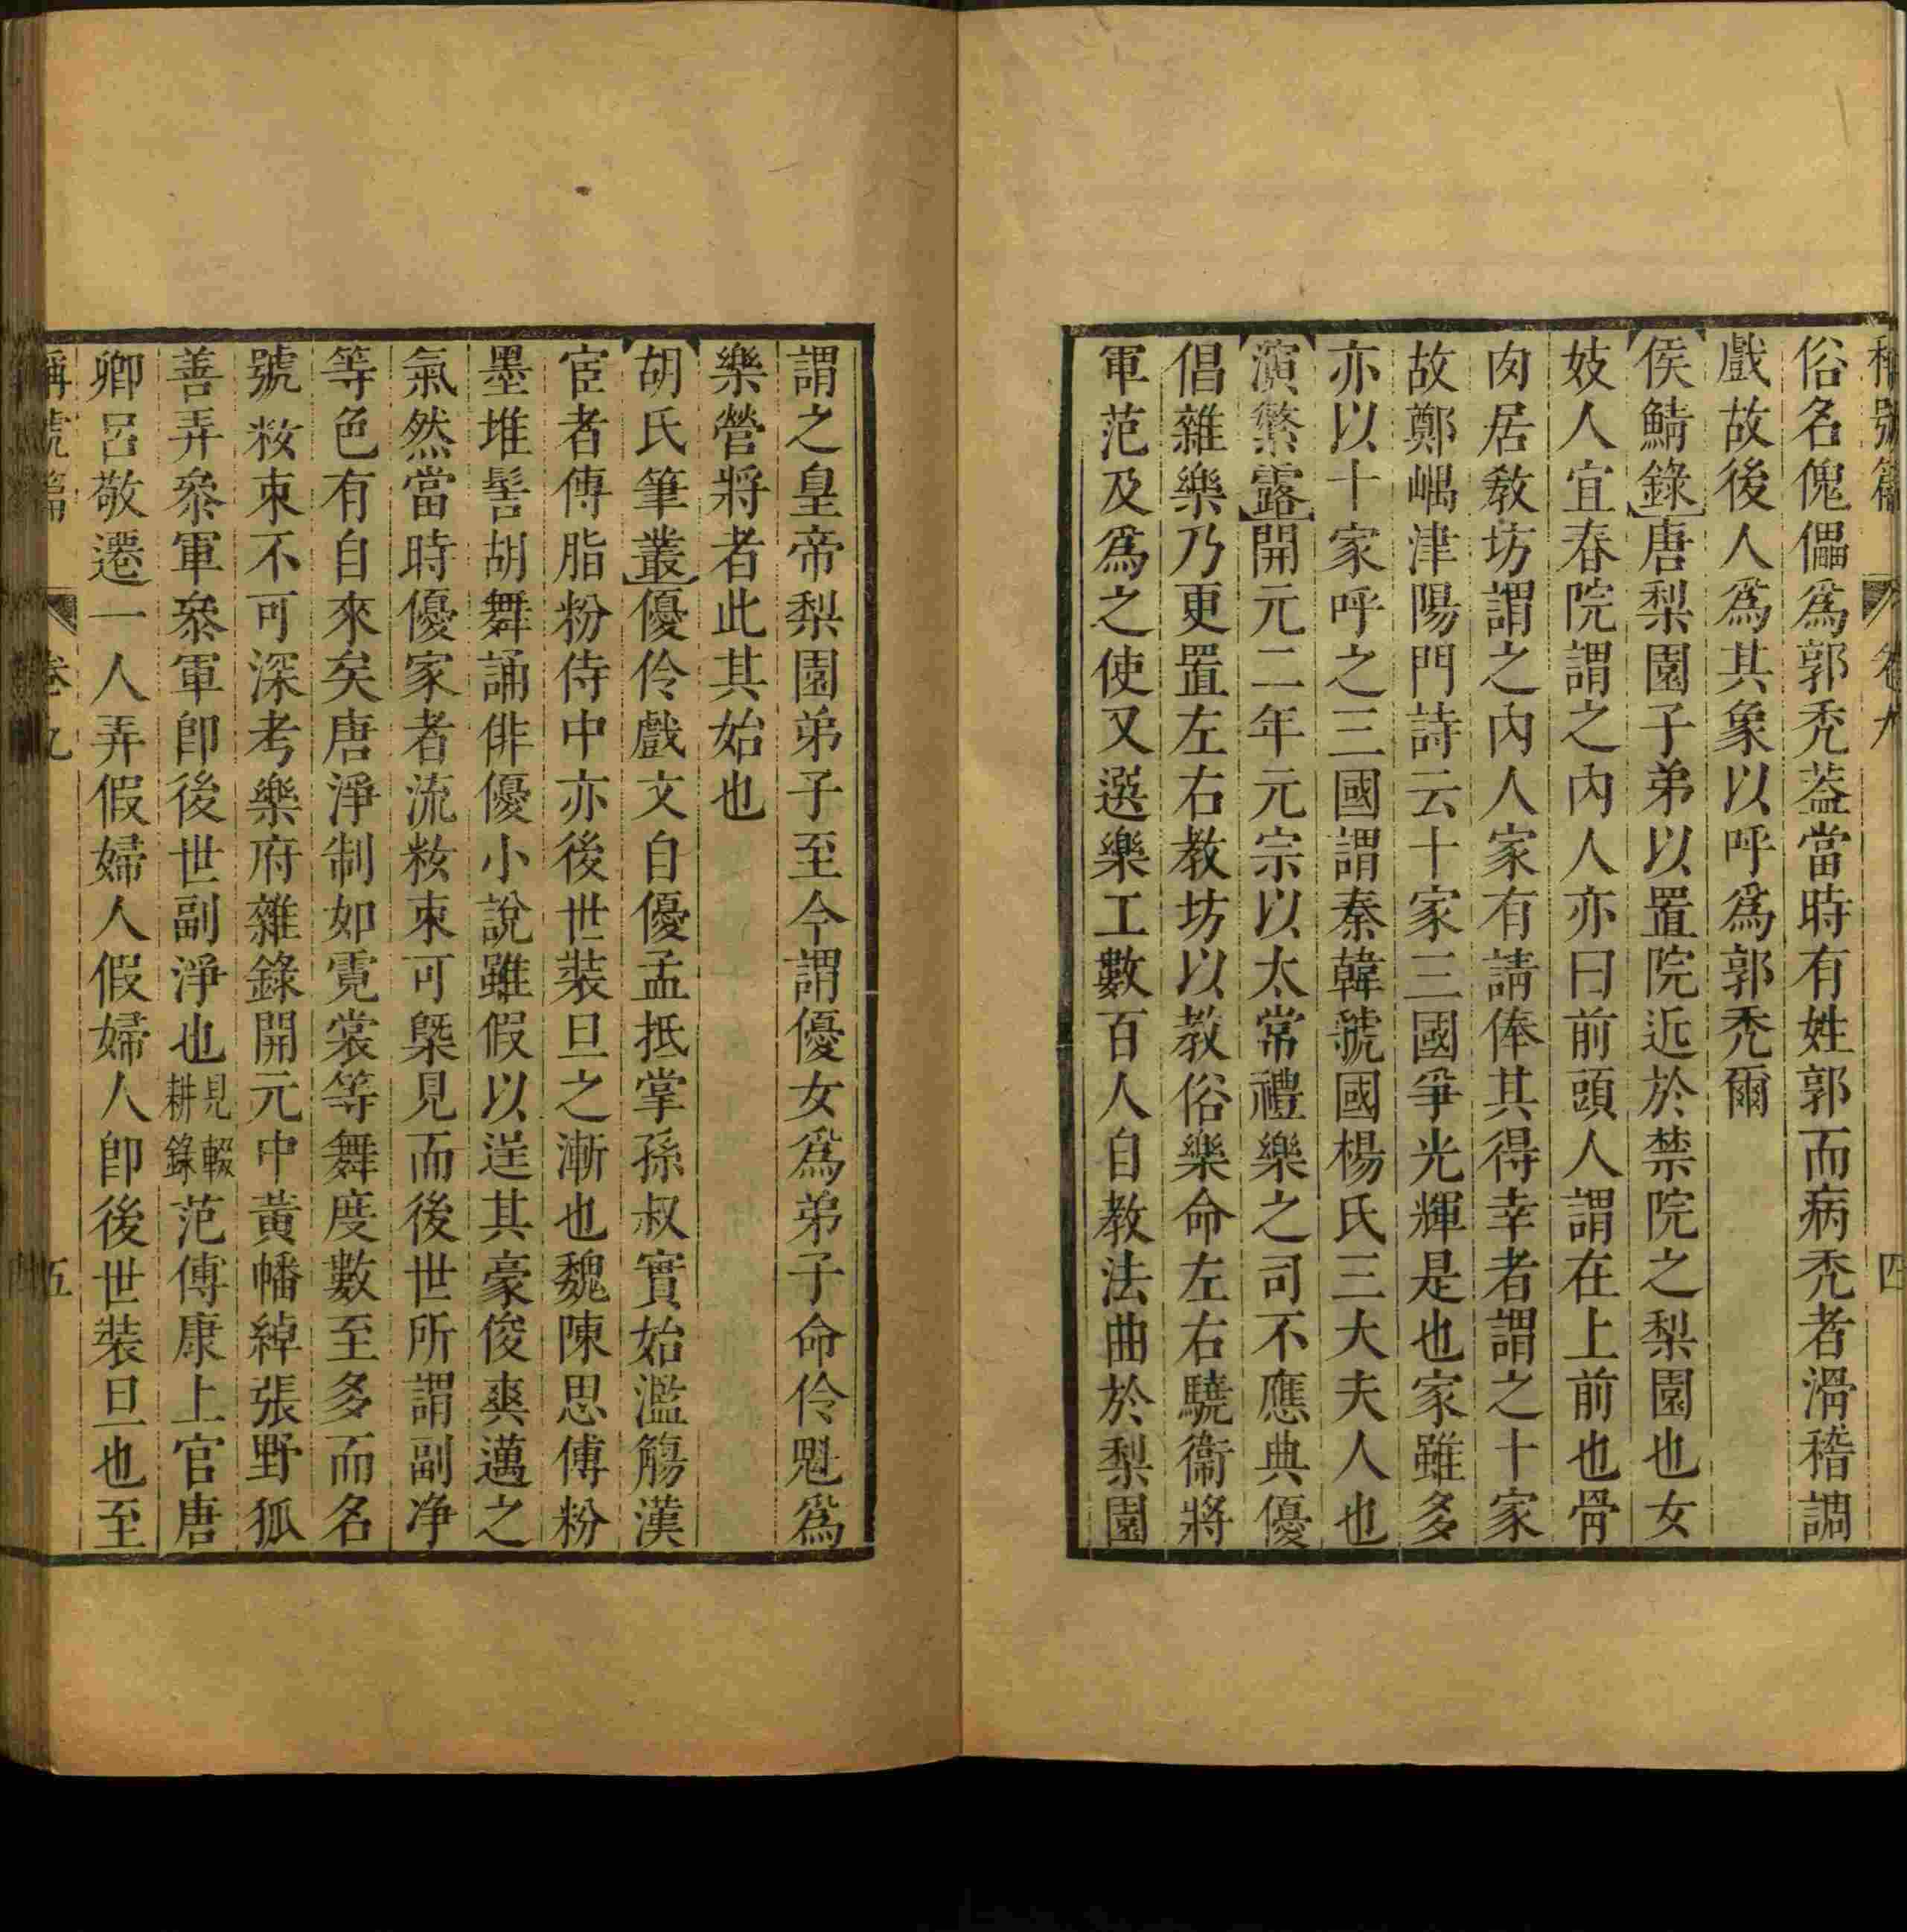 稱號篇 卷九 四
俗名傀儡爲郭禿葢當時有姓郭而病禿者滑稽調
戲故後人爲其象以呼爲郭禿爾
侯鯖錄唐梨園子弟以置院近於禁院之梨園也女
妓人宜春院謂之內人亦曰前頭人謂在上前也骨
肉居教坊謂之內人家有請俸其得幸者謂之十家
故鄭嵎津陽門詩云十家三國爭光輝是也家雖多
亦以十家呼之三國謂秦韓虢國楊氏三大夫人也
演繁露開元二年元宗以太常禮樂之司不應典優
倡雜樂乃更置左右教坊以教俗樂命左右驍衞將
軍范及爲之使又選樂工數百人自教法曲於梨園
謂之皇帝梨園弟子至今謂優女爲弟子命伶魁爲
樂營將者此其始也
胡氏筆叢優伶戲文自優孟抵掌孫叔實始濫觴漢
宦者傳脂粉侍中亦後世裝旦之漸也魏陳思傅粉
墨堆髻胡舞誦俳優小說雖假以逞其豪俊爽邁之
氣然當時優家者流粧束可槩見而後世所謂副净
等色有自來矣唐淨制如霓裳等舞度數至多而名
號粧束不可深考樂府雜錄開元中黃幡綽張野狐
善弄叅軍叅軍卽後世副淨也見輟耕錄范傳康上官唐
卿呂敬遷一人弄假婦人假婦人卽後世裝旦也至
稱號篇 卷九 五